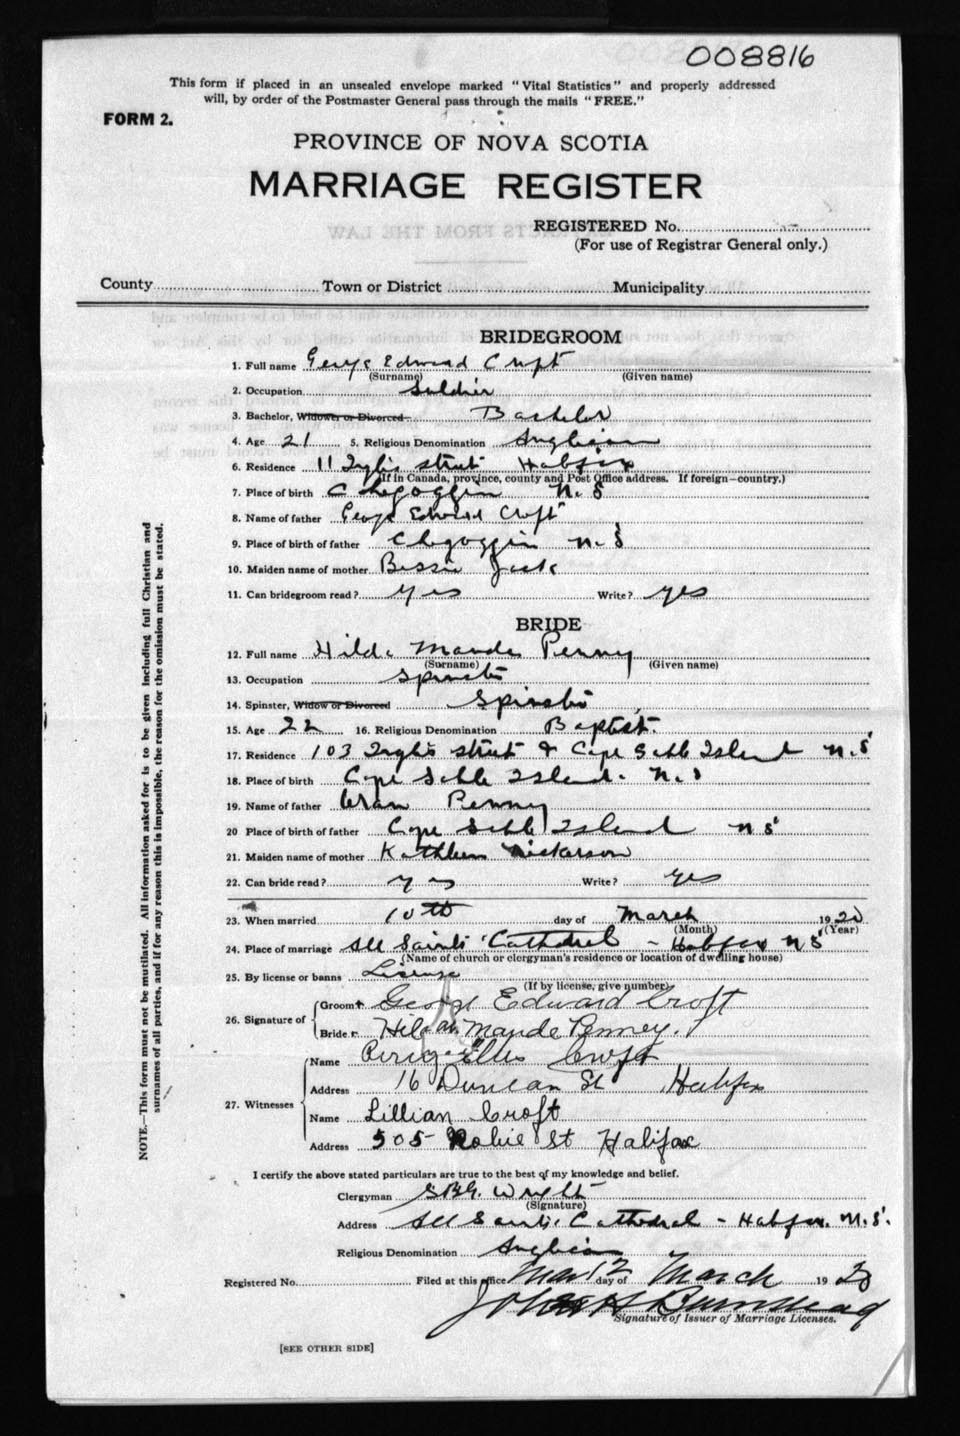 008816
This form if placed in an unsealed envelope marked "Vital Statistics" and properly addressed
will, by order of the Postmaster General pass through the mails "FREE."
FORM 2.
PROVINCE OF NOVA SCOTIA
MARRIAGE REGISTER
REGISTERED No.
(For use of Registrar General only.)
County Town or District Municipality
BRIDEGROOM
1. Full name George Edward Croft
(Surname) (Given name)
2. Occupation Soldier
3. Bachelor, Widower or Divorced Bachelor
4. Age 21 5. Religious Denomination Anglican
6. Residence 11 Inglis Street Halifax
(If in Canada, province, county and Post Office address. If foreign-country.)
7. Place of birth Chegoggin N.S
8. Name of father George Edward Croft
9. Place of birth of father Chegoggin N.S
10. Maiden name of mother Bessie
11. Can bridegroom read? Yes Write? Yes
BRIDE
12. Full name Hilda Maude Penny
(Surname) (Given name)
13. Occupation Spinster
14. Spinster, Widow or Divorced Spinster
15. Age 22 16. Religious Denomination Baptist.
17. Residence 103 Inglis Street & Cape Sable Island N.S
18. Place of birth Cape Sable Island. N.S
19. Name of father Penny
20 Place of birth of father Cape Sable Island N S
21. Maiden name of mother Kathleen Nickerson
22. Can bride read? Yes Write? Yes
23. When married 10th day of March 1920
(Month) (Year)
24. Place of marriage All Saints Cathedral - Halifax N S
(Name of church or clergyman's residence or location of dwelling house)
25. By license or banns License
(If by license, give number)
26. Signature of Groom George Edward Croft
Bride Hilda Maude Penney.
27. Witnesses Name Percy Ellis Croft
Address 16 Duncan St Halifax
Name Lillian Croft
Address 505 Robie St Halifax
I certify the above stated particulars are true to the best of my knowledge and belief.
Clergyman Wright
(Signature)
Address All Saints Cathedral - Halifax. N.S.
Religious Denomination Anglican
Registered No. Filed at this office 12 day of March 1920
John
Signature of Issuer of Marriage Licenses.
[SEE OTHER SIDE]
NOTE.—This form must not be mutilated. All information asked for is to be given including full Christian and
surnames of all parties, and if for any reason this is impossible, the reason for the omission must be stated.